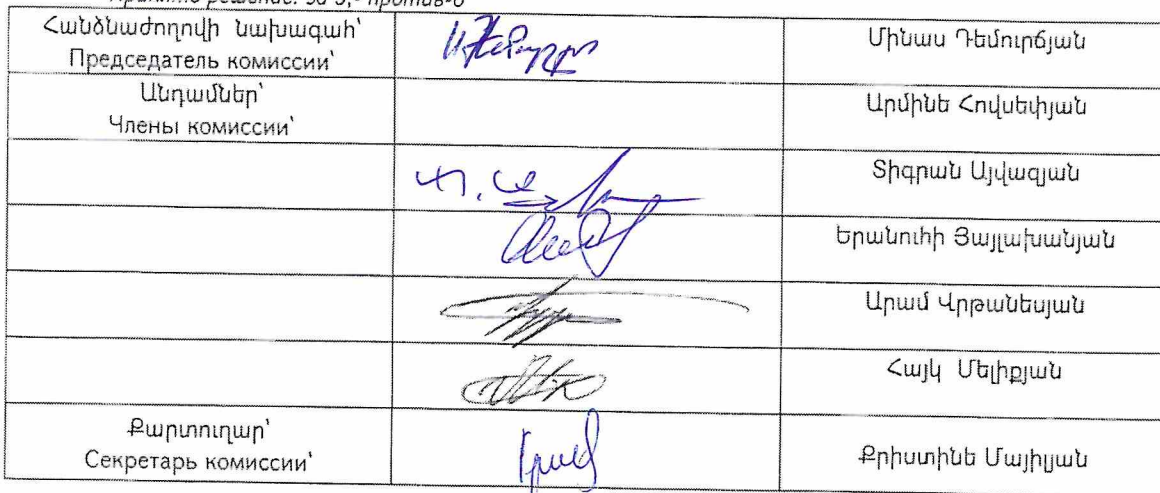 Принято решение: за-5,- против-0
Հանձնաժողովի նախագահ՝
Председатель комиссии՝
Մինաս Դեմուրճյան
Անդամներ՝
Члены комиссии՝
Արմինե Հովսեփյան
Տիգրան Այվազյան
Երանուհի Յայլախանյան
Արամ Վրթանեսյան
Հայկ Մելիքյան
Քարտուղար՝
Секретарь комиссии՝
Քրիստինե Մայիլյան